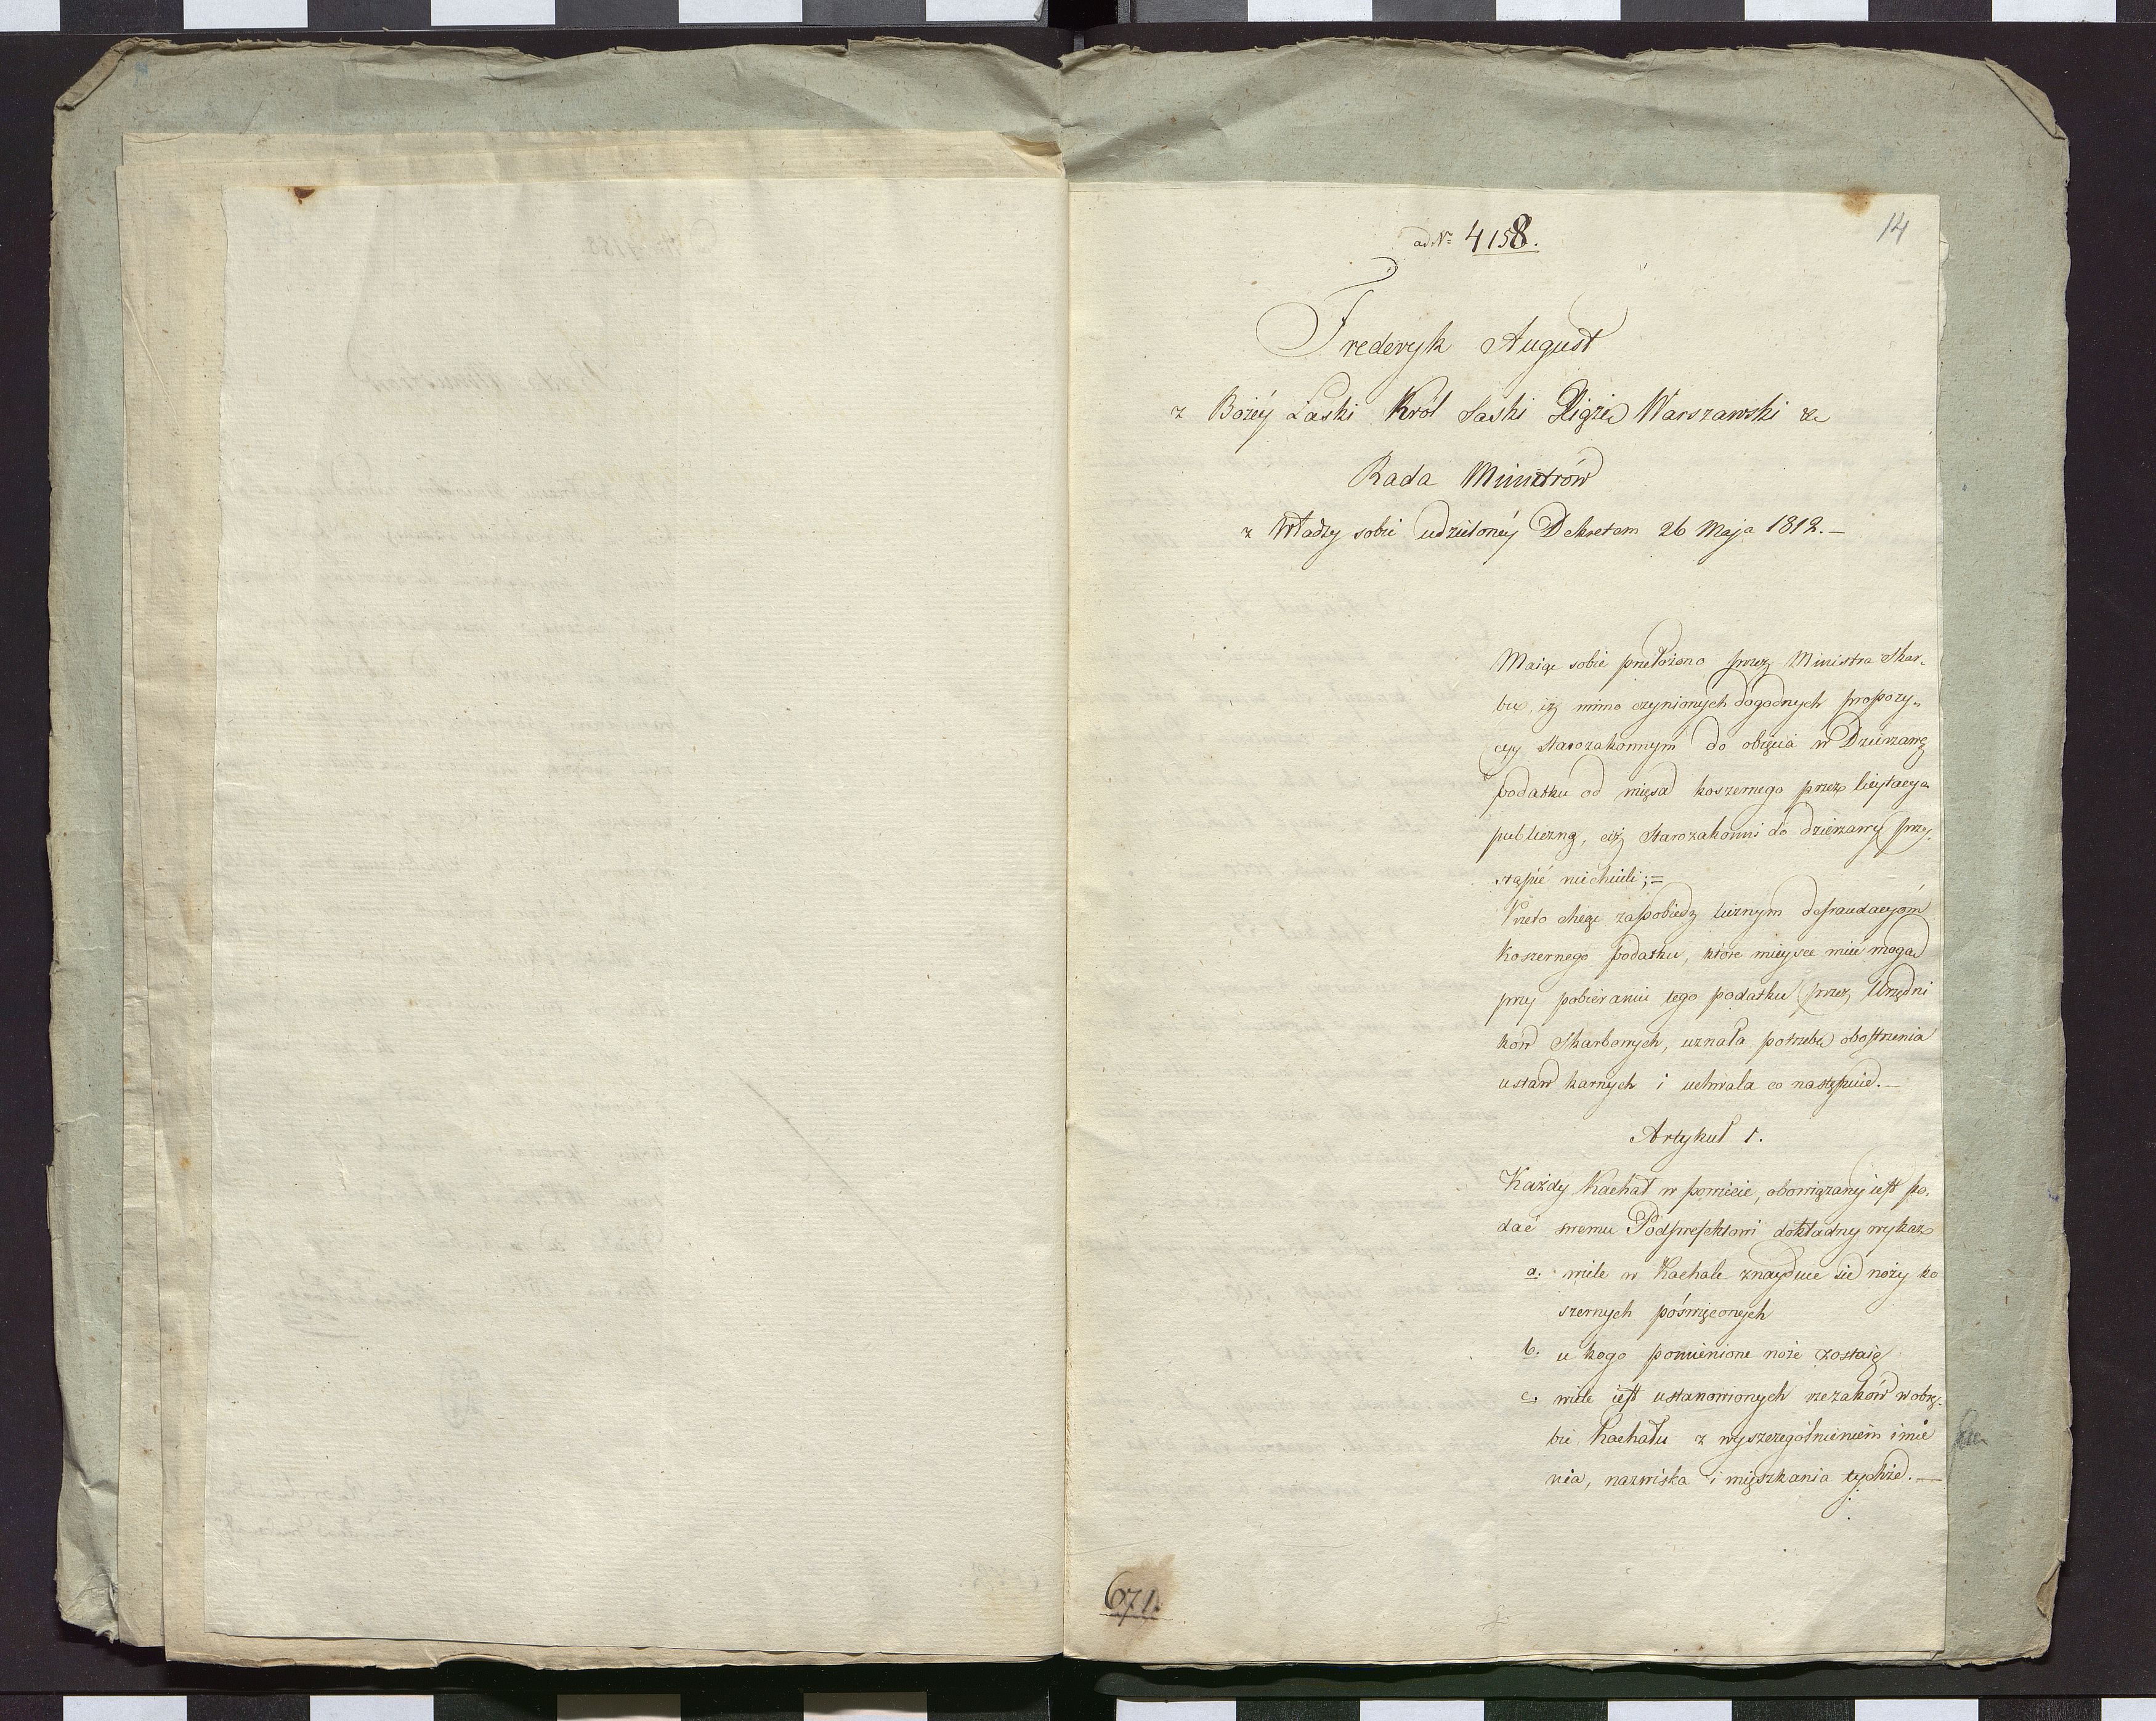 ad N<sup>o</sup> 4158.
14
Fryderyk August
z Bożéy Łaski Król Saski Xiąże Warszawski &c
Rada Ministrów
z Władzy sobie udzielonéy Dekretem 26 Maja 1812.—
Maiąc sobie przełożono przez Ministra Skar-
bu, iż mimo czynionych dogodnych propozy-
cyy Starozakonnym do obięcia w Dzierżawę
podatku od mięsa koszernego przez licytacyą
publiczną, ciż Starozakonni do dzierżawy przy-
stąpić niechcieli;=
Przeto chcąc zapobiedz licznym defraudacyóm
Koszernego podatku, które mieysce mieć mogą
przy pobieraniu tego podatku przez Urzędni
ków Skarbowych, uznała potrzebę obostrzenia
ustaw karnych i uchwala co następuie.—
Artykuł 1.
Każdy Kachał w powiecie, obowiązany iest po-
dać swemu Podprefektowi dokładny wykaz
a. wiele w Kachale znayduie się noży ko
szernych poświęconych
b. u kogo pomienione noże zostaią
c. wiele iest ustanowionych rzezaków w obrę-
bie Kachału z wyszczególnieniem imie
nia, nazwiska i mieszkania tychże.—
671.